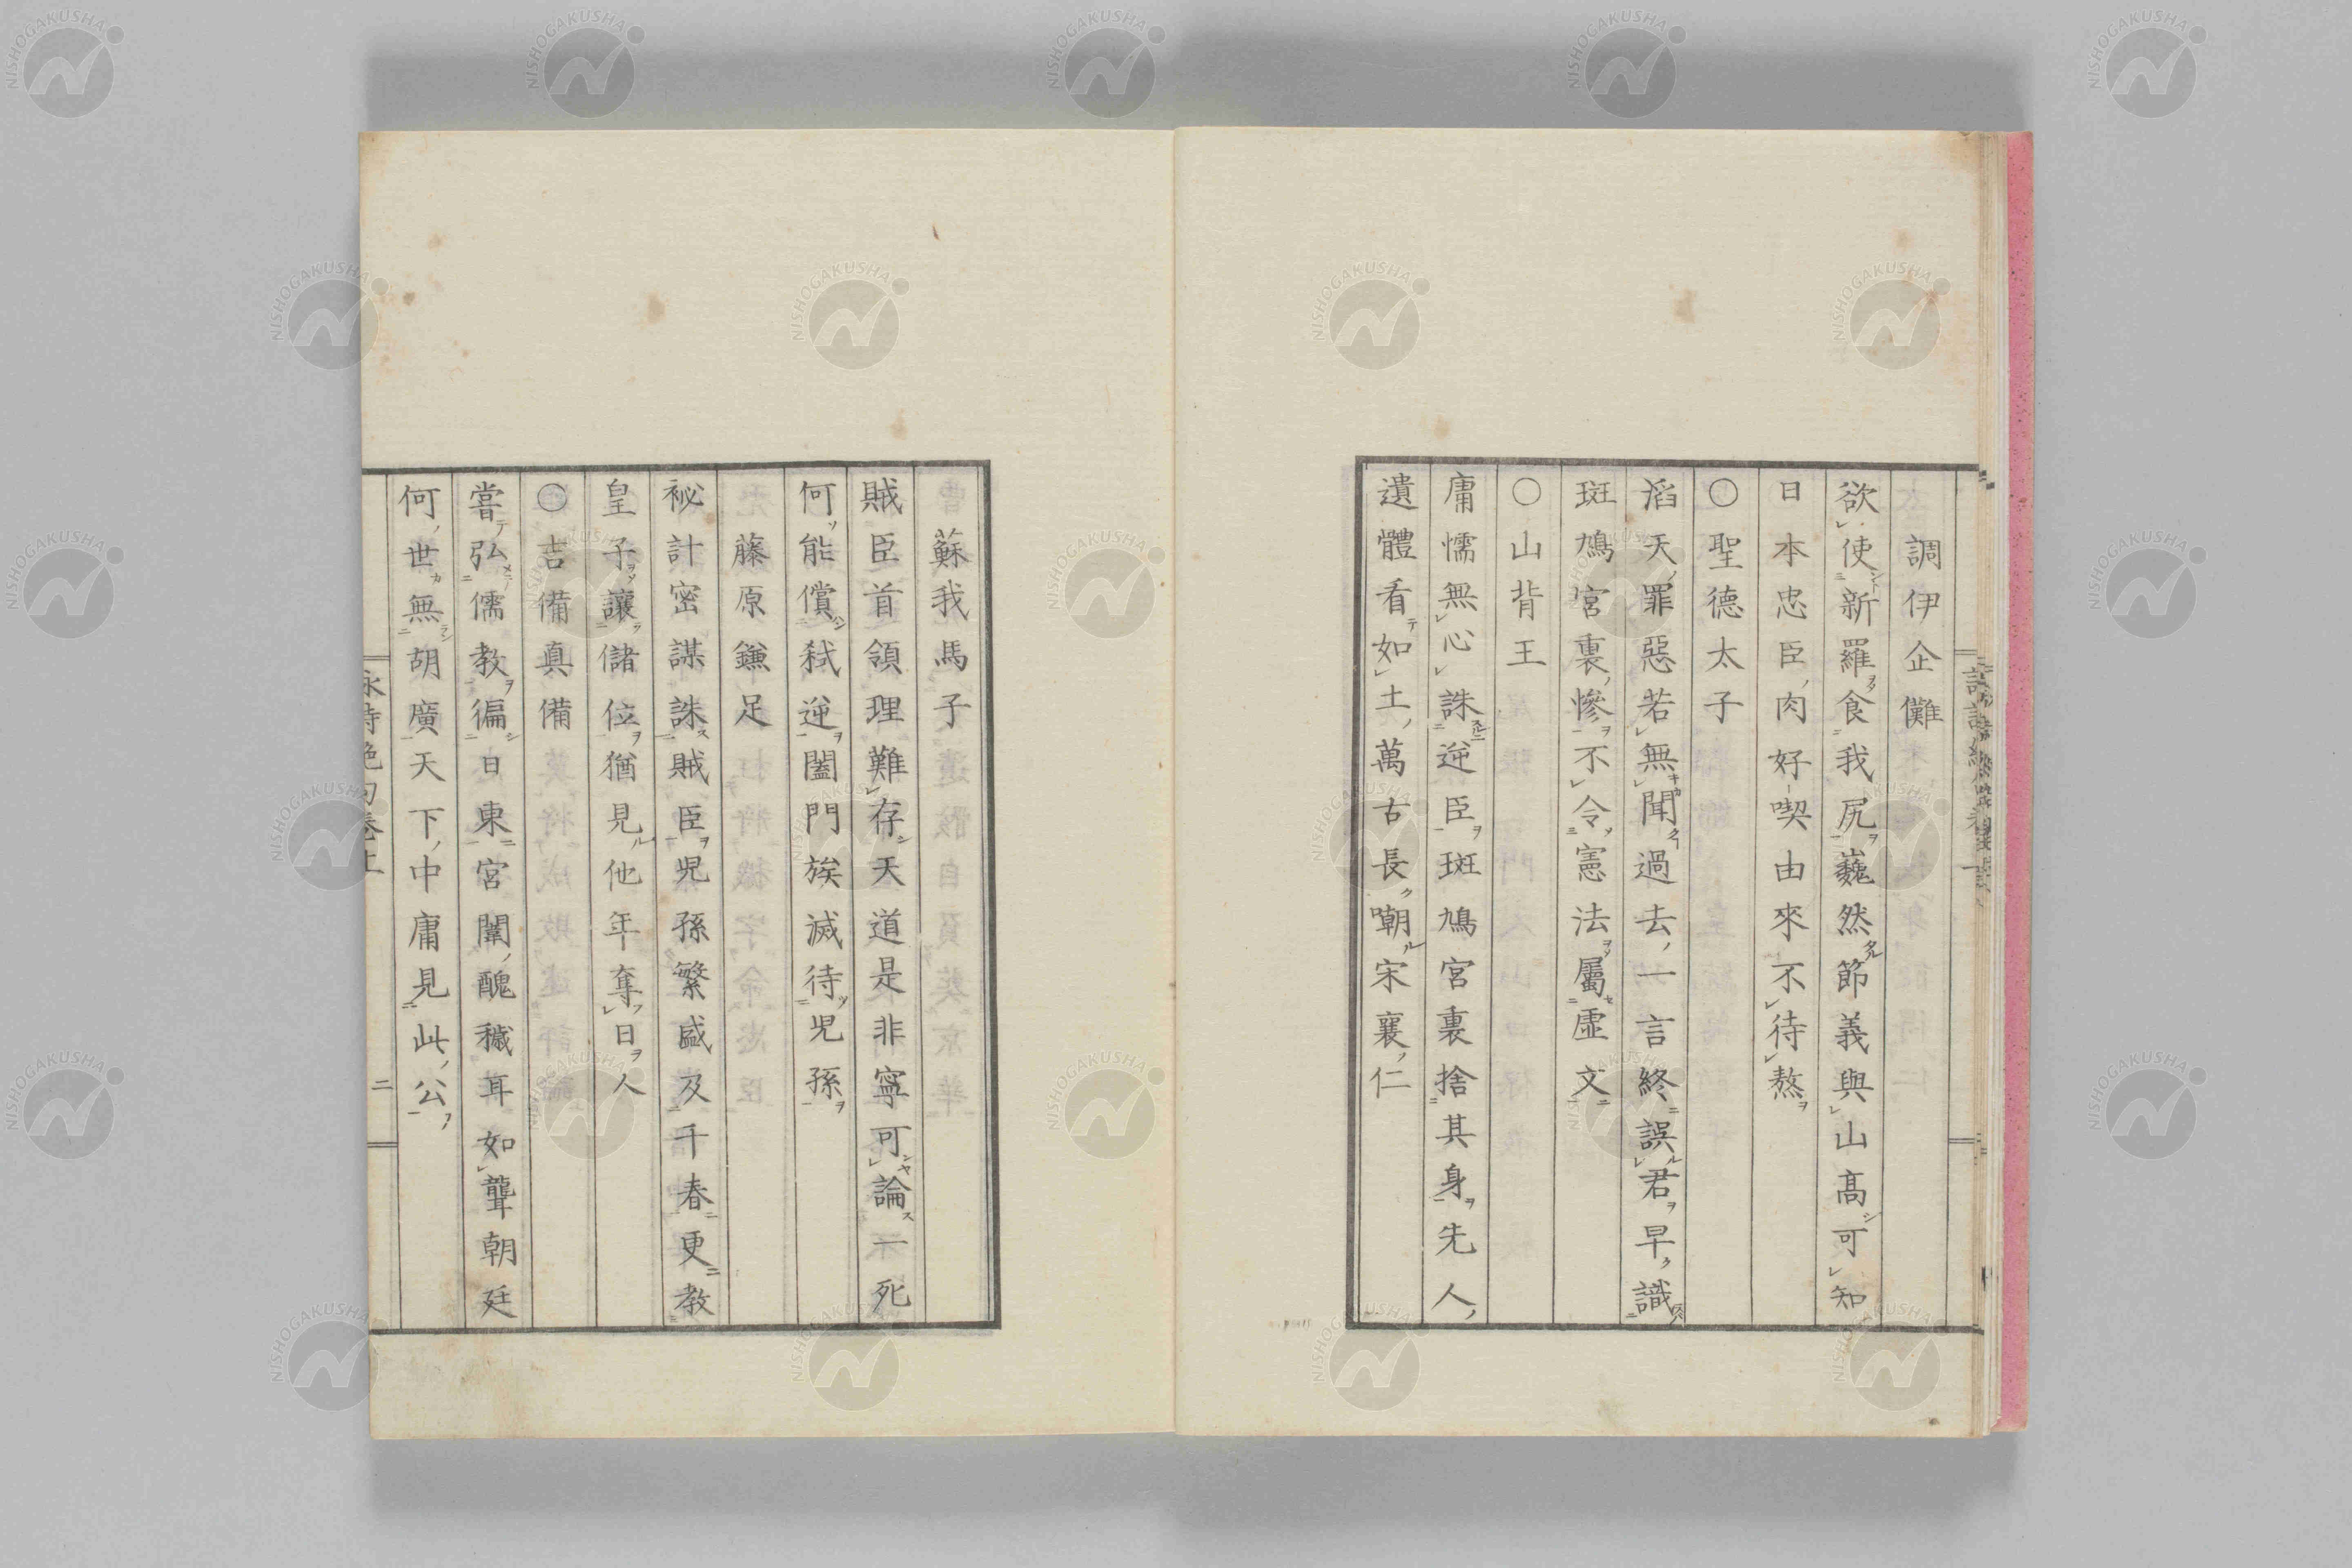 調伊企儺
欲使新羅食我尻巍然節義與山髙可知
日本忠臣肉好喫由來不待熬
〇聖德太子
滔天罪惡若無聞過去一言終誤君早識
斑鳩宮裏慘不令憲法屬虛文
〇山背王
庸懦無心誅逆臣斑鳩宮裏捨其身先人
遺體看如土萬古長嘲宋襄仁
蘇我馬子
賊臣首領理難存天道是非寧可論一死
何能償弒逆闔門族滅待児孫
藤原鎌足
祕計密謀誅賊臣児孫繁盛及千春更教
皇子讓儲位猶見他年奪日人
〇吉備真備
嘗弘儒教徧日東宮闈醜穢耳如聾朝廷
何世無胡廣天下中庸見此公
詠詩絶句卷上
二
NISHOGAKUSHA